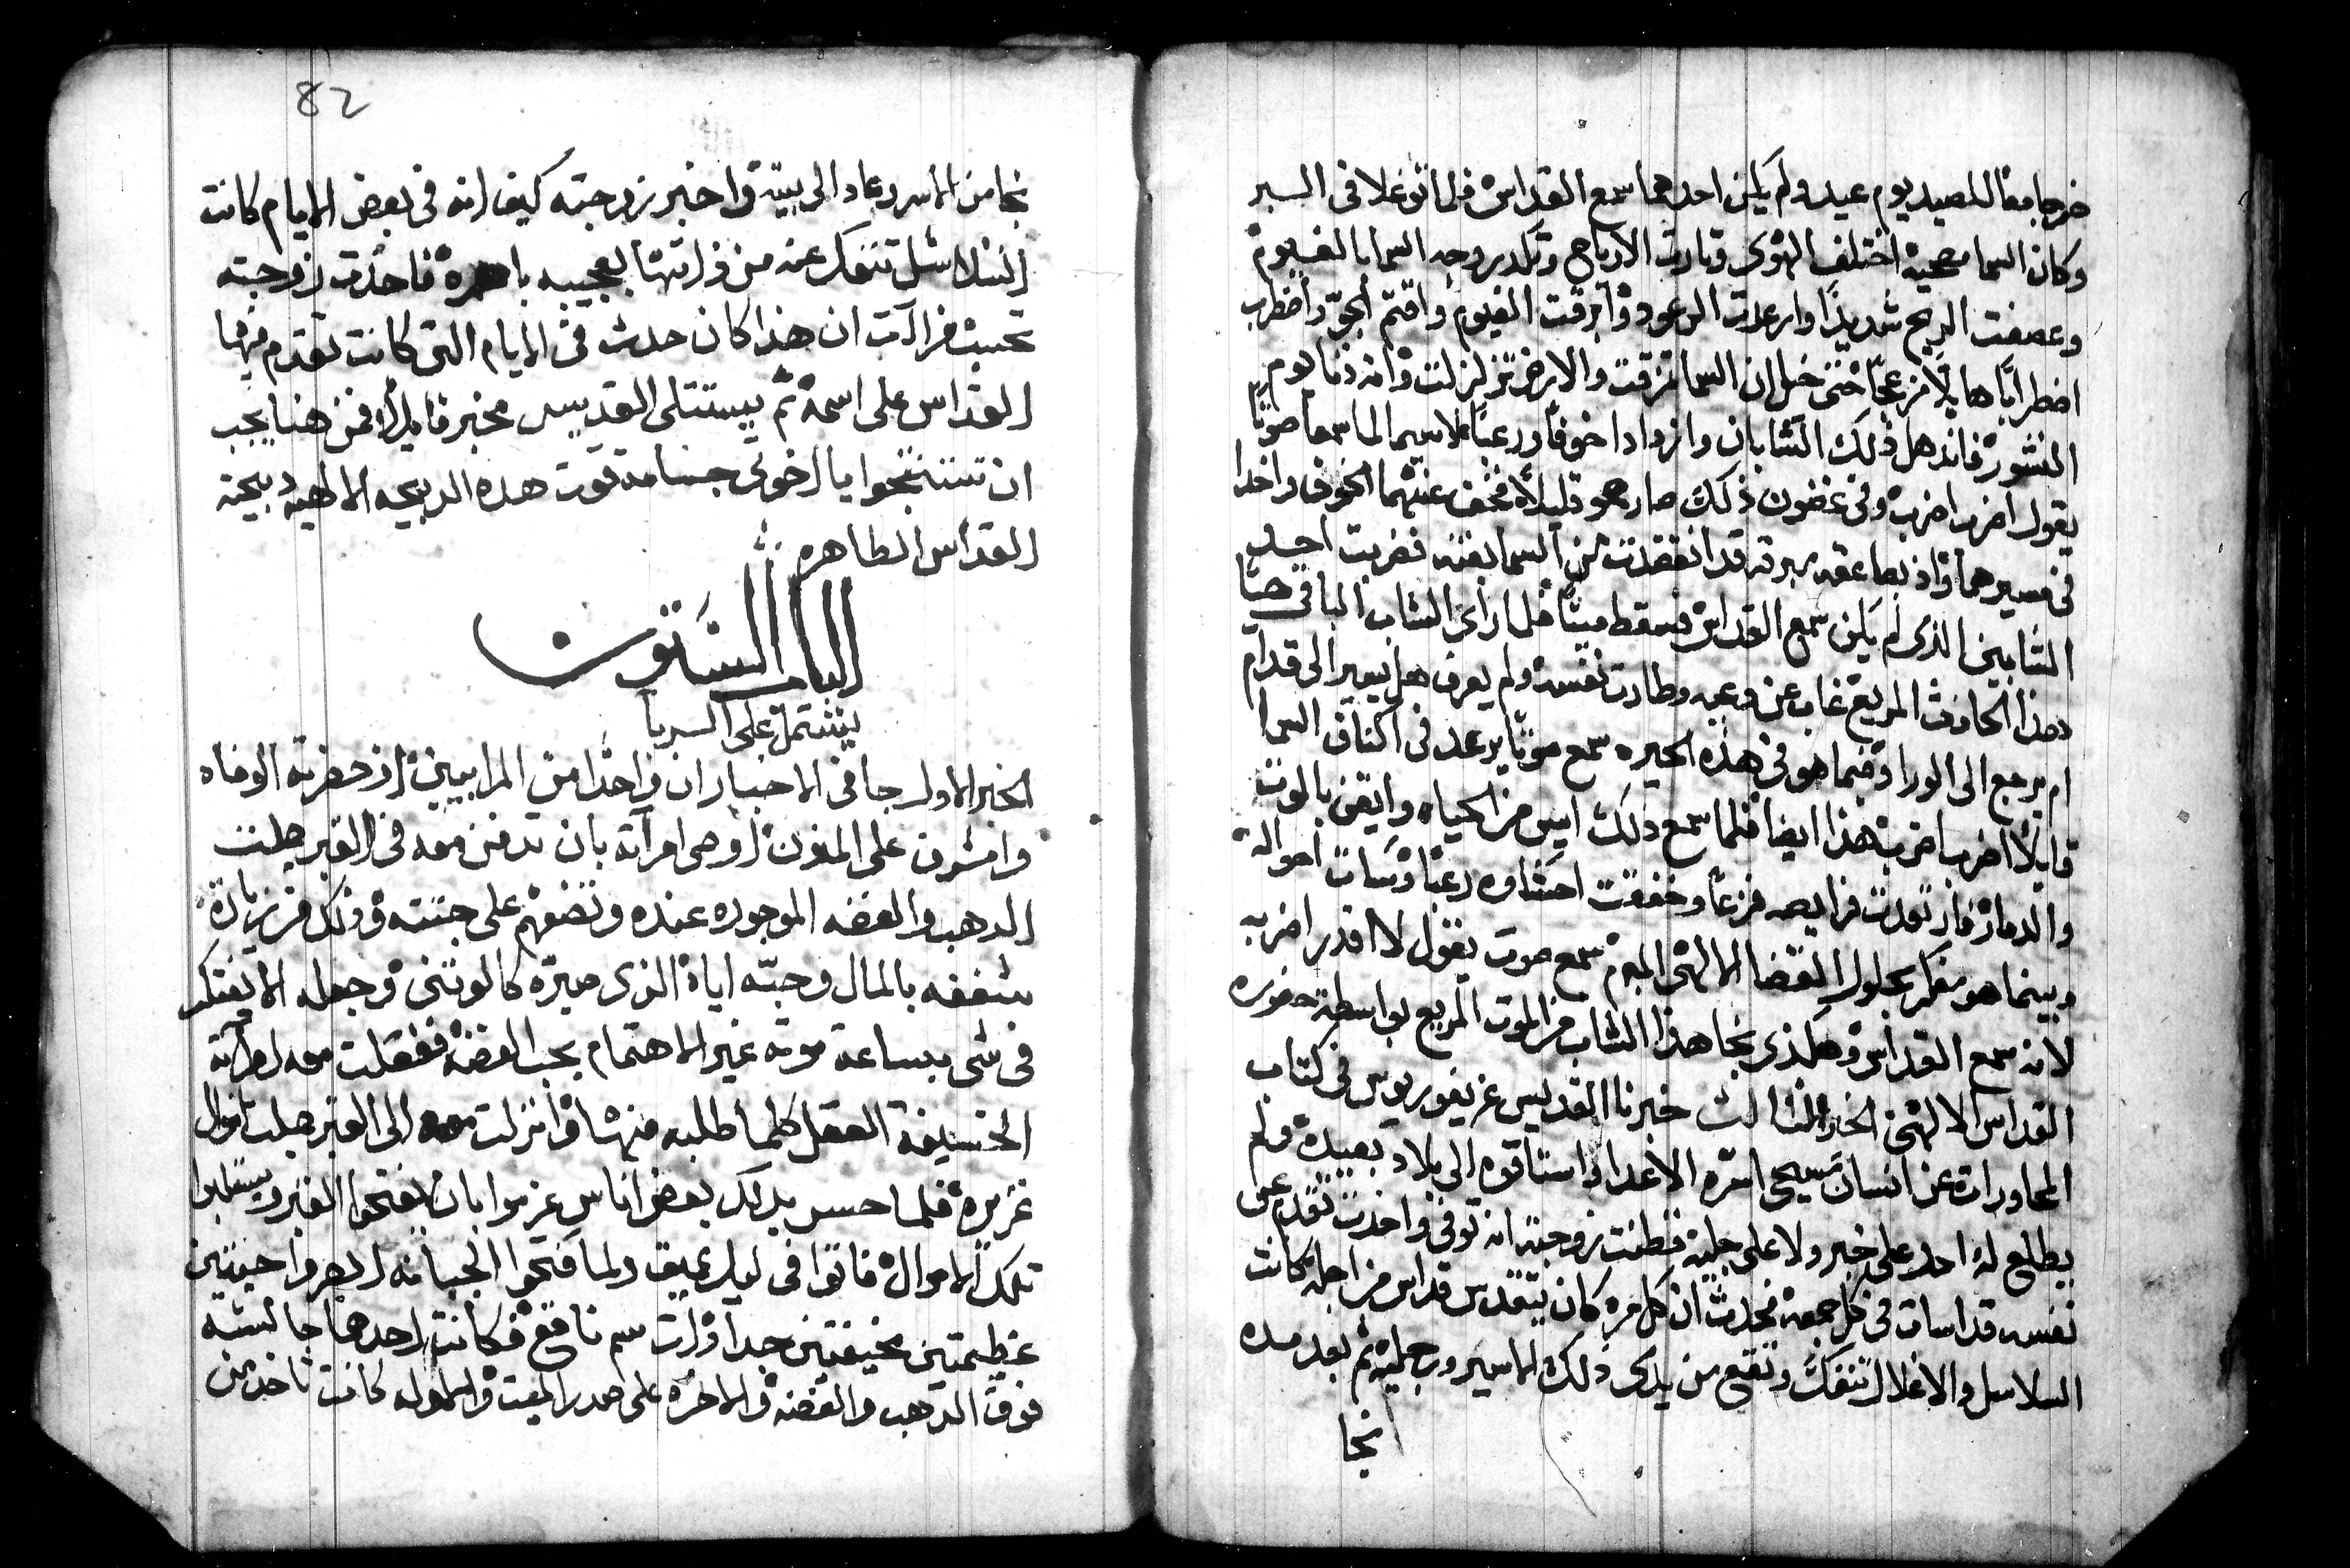 خرجا معًا للصيد يوم عيد ولم يكن احدهما سمع القداس فلما توغلا في السير
وكان السما مصحيه اختلف الهوى وثارت الارياح وتكدر وجه السما بالغيوم
وعصفت الريح شديدًا وارعدت الرعود وابرقت الغيوم واقتم الجو واضطرب
اضطرابًا هايلًا مزعجًا حتى خيل ان السما تمزقت والارض تزلزلت وانه دنا يوم
النشور فاندهل ذلك الشابان وازدادا خوفًا ورعبًا لا سيما لما سمعا صوتًا
يقول اضرب اضرب وفي غضون ذلك صار هو قليلًا فخف عنهما الخوف واخدا
في مسيرهما واذ بصاعقه برقه قد انقضت من السما بغته فضربت احد
الشابين الذي لم يكن سمع القداس فسقط ميتًا فلما راى الشاب الباقي حيًا
هذا الحادث المريع غاب عن وعيه وطارت نفسه ولم يعرف هل يسير الى قدام
ام يرجع الى الورا وفيما هو في هذه الحيره سمع صوتًا يرعد في اكناف السما
قايلًا اضرب اضرب هذا ايضا فلما سمع ذلك ايس من الحياه وايقن بالموت
والدمار فارتعدت فرايصه فزعًا وخفقت احشاوه رعبًا وسات احواله
وبينما هو مفكر بحلول القضا الالهي المبرم سمع صوت يقول لا اقدر اضربه
لانه سمع القداس وهكذى نجا هذا الشاب من الموت المريع بواسطة حضوره
القداس الالهي الخبر الثالث خبرنا القديس غريغوريوس في كتاب
المحاورات عن انسان مسيحي اسره الاعدا واستاقوه الى بلاد بعيده ولم
يطلع له احد على خبر ولا على جليه فظنت زوجته انه توفي واخدت تقدم عن
نفسه قداسات في كل جمعه فحدث ان كل مره كان يتقدس قداس من اجله كانت
السلاسل والاغلال تنفك وتقع من يدى ذلك الاسير ورجليه ثم بعد مده
نجا
82
نجا من الاسر وعاد الى بيته واخبر زوجته كيف انه في بعض الايام كانت
السلاسل تنفك عنه من ذاتها بعجيبه باهره فاخدت زوجته
تحسب فرات ان هذا كان حدث في الايام التي كانت تقدم فيها
القداس على اسمه ثم يستتلى القديس مخبر قايلًا فمن هنا يجب
ان تستنتجوا يا اخوتي جسامة قوت هده الدبيحه الالهيه دبيحة
القداس الطاهره
الباب الستون
يشتمل على السريا
الخبر الاول جا في الاخبار ان واحدًا من المرابيين اذ حضرته الوفاه
واشرف على المنون اوصى امراته بان تدفن معه في القبر جلت
الدهب والفضه الموجوده عنده وتضعهم على جتته وذلك من زيادة
شغفه بالمال وحبه اياه الذي صيره كالوثني وجعله الا يفتكر
في شي بساعة موته غير الاهتمام بحب الفضه ففعلت معه امراته
الخسيفة العقل كلما طلبه منها وانزلت معه الى القبر جلت اموال
غزيره فلما حس بدلك بعض اناس عزموا بان يفتحوا القبر ويستلبوا
تلك الاموال فاتوا في ليل عميق ولما فتحوا الجبانه ابصروا حيتين
عظيمتين مخيفتين جدا وذات سم ناقع فكانت احدهما جالسه
فوق الدهب والفضه والاخره على صدر الميت والاوله كانت تاخد من